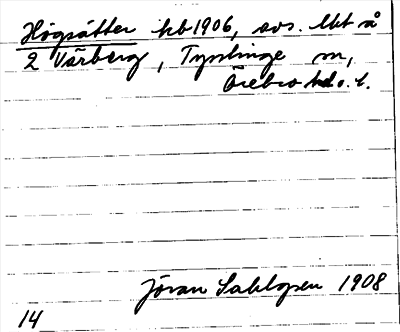 Högsätter kb 1906, avs. lht å
2 Vårberg, Tysslinge sn,
Örebro hd o. l.
Jöran Sahlgren 1908
14